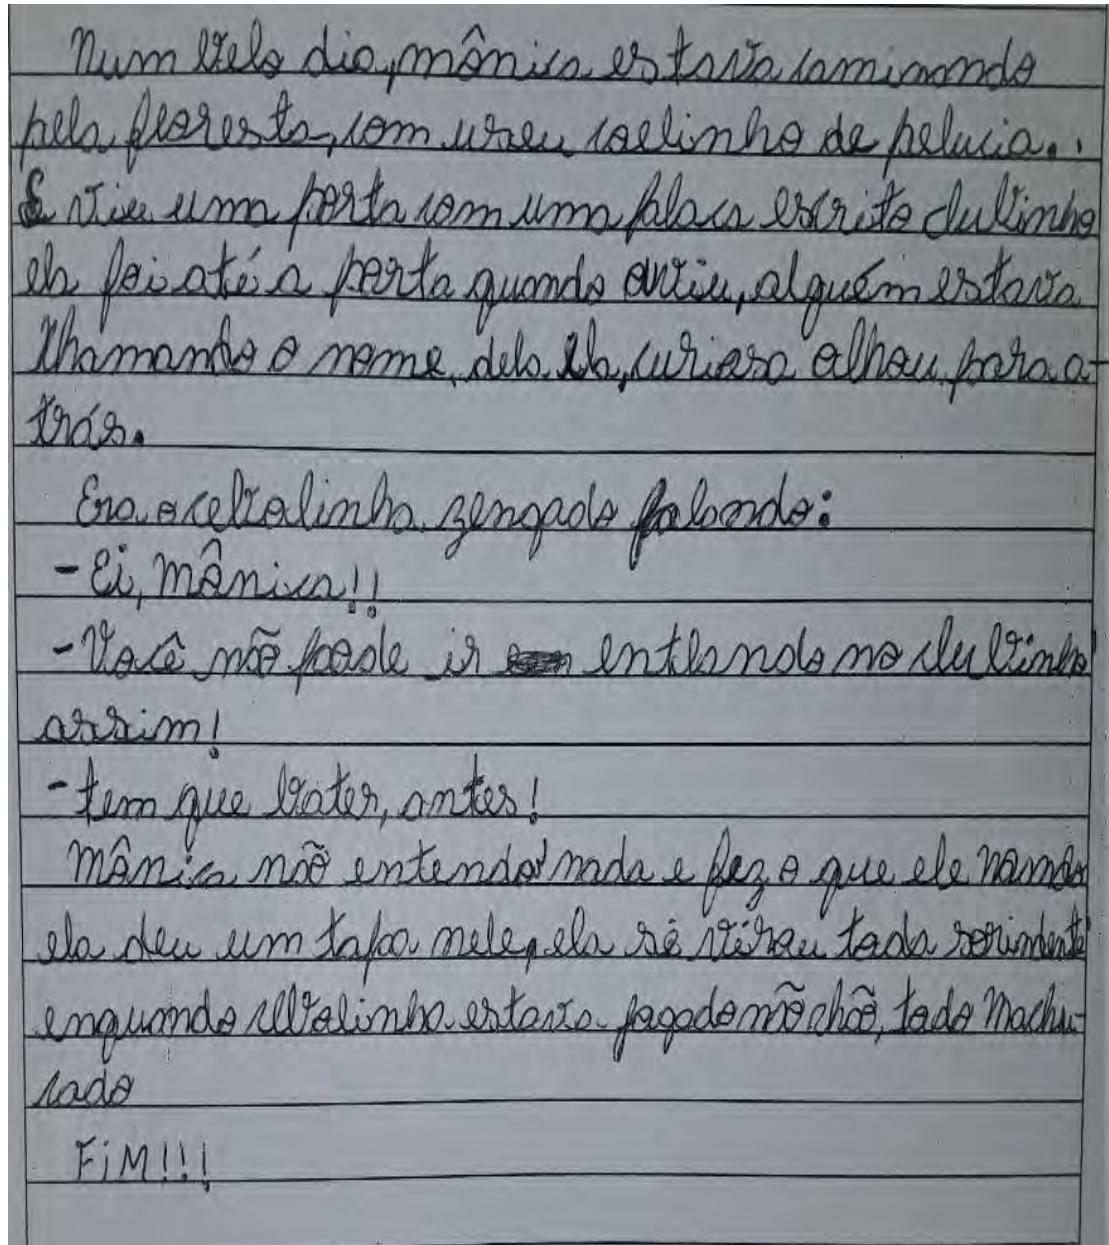 Num belo dia, mônica estava caminando
pela floresta, com useu coelinho de pelucia..
E viu uma porta com uma placa escrito clubinho
ela foi até a porta quando ouviu, alguém estava
Chamando o nome, dela. Ela, curiosa olhou, para a-
trás.
Era o cebolinha zengado falando:
- Ei, mônica!!
- Você não pode ir entlando no clubinho
assim!
- tem que bater, antes!
mônica não entendo nada e fez o que ele
ela deu um tapa nele, ela se virou toda sorindente
enquando cebolinha estava jogado nõ chão, todo Machu-
cado
FiM!!!